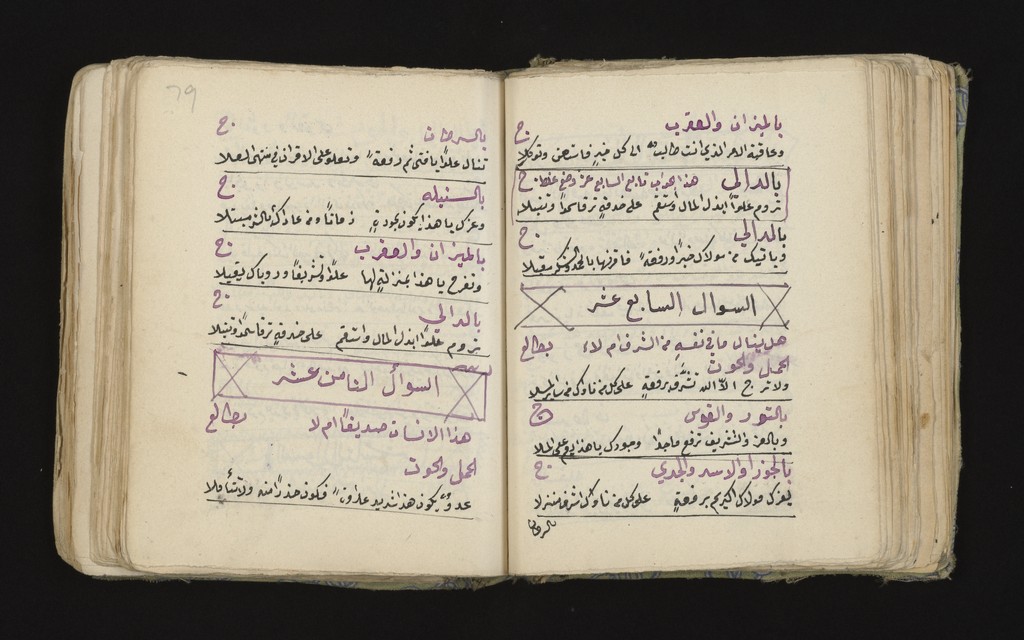 بالميزان والعقرب ج
وعاقبة الامر الذي انت طالب الى كل خير فاستعن وتوكلا
بالدالي هذا جواب تابع السابع عشر وضع غلط ج
تروم علوّاً ابذل المال واستقم على خدمةٍ ترقا سموّاً وتنبلا
بالدالي ج
وياتيك من مولاك خيراً ورفعةً فاقرنها بالحمد والشكر مقبلا
السوال السابع عشر
هل ينال ما في نفسه من الشرف ام لاء بطالع
الحمل والحوت
ولا ترج الا الله تشرف برفعةٍ على كل من ناواك من ساير الملا
بالثور والقوس ج
وبالعز والتشريف ترفع ماجداً وجودك يا هذا على الملا
بالجوزا والاسد والجدي ج
يعزك مولاك الكريم برفعةٍ على كل من ناواك اشرف منزلا
بالسرطان
79
بالسرطان ج
تنال علوّاً يا فتى ثم رفعةً وتعلو على الاقران في منتهى العلا
بالسنبله ج
وعزك يا هذا يكون بجودةٍ زماناً ومن عاداك بالخزي مبتلا
بالميزان والعقرب ج
وتفرح يا هذا بمنزلةٍ لها علوّاً وتشريفاً
بالدالي ج
تروم علوّاً ابذل المال واستقم على خدمةٍ ترقا سموّاً وتنبلا
السوال الثامن عشر
هذا الانسان صديقاً ام لا بطالع
الحمل والحوت
عدوٌ يكون هذا شديد عداوة فكون حذراً منه ولا تتأملا